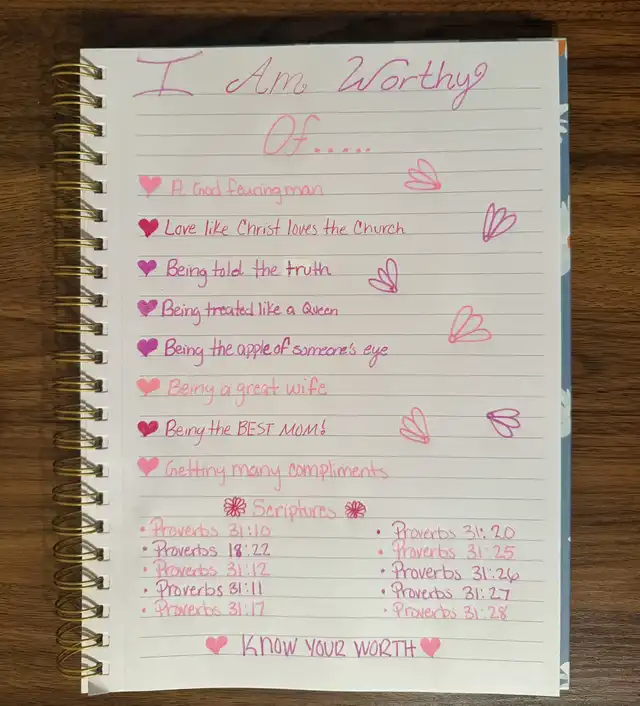 I Am Worthy
Of.....
A God fearing man
Love like Christ loves the Church
Being told the truth
Being treated like a Queen
Being the apple of someone's eye
Being a great wife
Being the BEST MOM!
Getting many compliments
Scriptures
• Proverbs 31:10
• Proverbs 18:22
• Proverbs 31:12
• Proverbs 31:11
• Proverbs 31:17
• Proverbs 31:20
• Proverbs 31:25
• Proverbs 31:26
• Proverbs 31:27
• Proverbs 31:28
KNOW YOUR WORTH